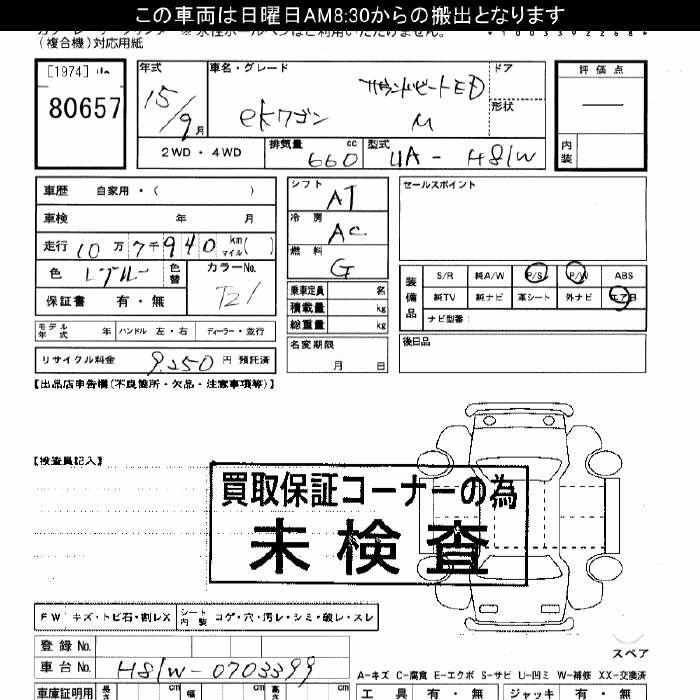 この車両は日曜日AM8:30からの搬出となります
(複合機)対応用紙
[1974]
80657
年式
15/9月
車名・グレード
サウンドビートED
ekワゴン
M
ドア
形状
評価点
内装
2WD・4WD
排気量
660cc
型式
UA-H81W
車歴 自家用・( )
車検 年 月
走行 10万7千940kmマイル( )
色
色替
カラーNo.
T21
保証書 有・無
シフト
AT
冷房
AC
燃料
G
乗車定員 名
積載量 kg
総重量 kg
名変期限
月 日
セールスポイント
装備品
S/R 純A/W P/S P/W ABS
純TV 純ナビ 革シート 外ナビ エアB
ナビ型番:
後日品
モデル年式 年 ハンドル 左・右 ディーラー・並行
リサイクル料金 9,250円 預託済
【出品店申告欄(不良箇所・欠品・注意事項等)】
【検査員記入】
買取保証コーナーの為
未検査
FW キズ・トビ石・割レX
シート内装 コゲ・穴・汚レ・シミ・破レ・スレ
スペア
登録No.
車台No. H81W-0703399
A-キズ C-腐食 E-エクボ S-サビ U-凹ミ W-補修 XX-交換済
車庫証明用 長さ cm 幅 cm cm
工具 有・無 ジャッキ 有・無